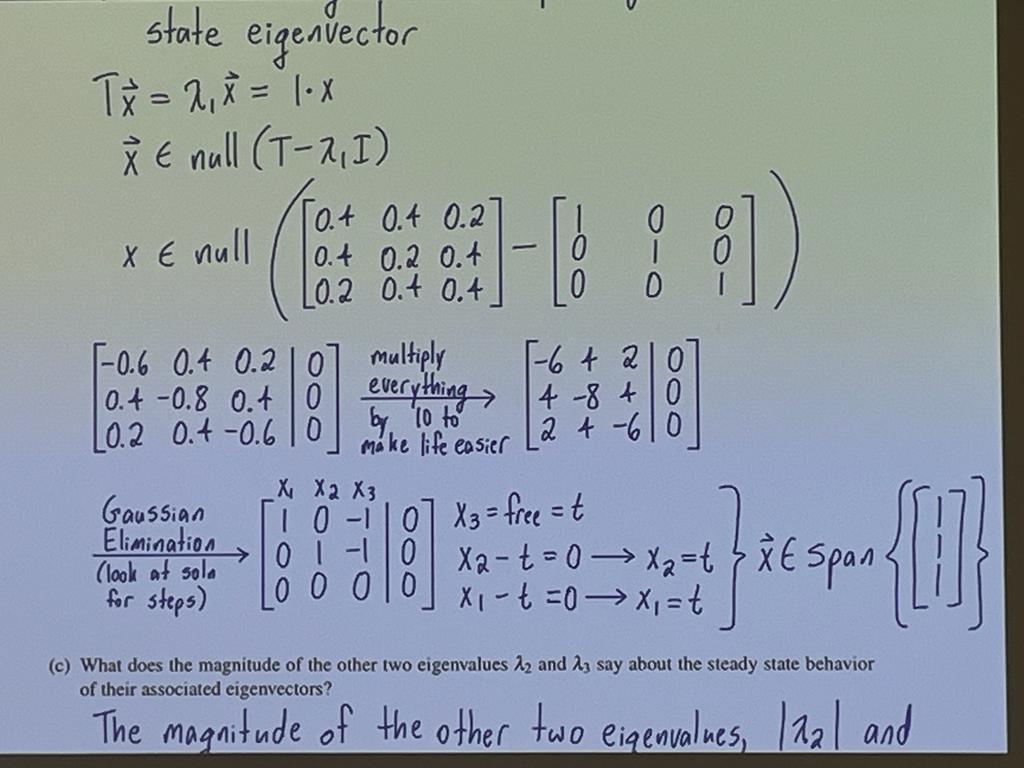 state eigenvector
Tx⃗ = λ₁x⃗ = 1·x
x⃗ ∈ null (T-λ₁I)
x ∈ null ([0.4 0.4 0.2; 0.4 0.2 0.4; 0.2 0.4 0.4] - [1 0 0; 0 1 0; 0 0 1])
[-0.6 0.4 0.2 | 0; 0.4 -0.8 0.4 | 0; 0.2 0.4 -0.6 | 0] multiply everything by 10 to make life easier → [-6 4 2 | 0; 4 -8 4 | 0; 2 4 -6 | 0]
x₁ x₂ x₃
Gaussian Elimination (look at soln for steps) → [1 0 -1 | 0; 0 1 -1 | 0; 0 0 0 | 0]
x₃ = free = t
x₂ - t = 0 → x₂ = t
x₁ - t = 0 → x₁ = t
} x⃗ ∈ Span {[1; 1; 1]}
(c) What does the magnitude of the other two eigenvalues λ₂ and λ₃ say about the steady state behavior
of their associated eigenvectors?
The magnitude of the other two eigenvalues, |λ₂| and